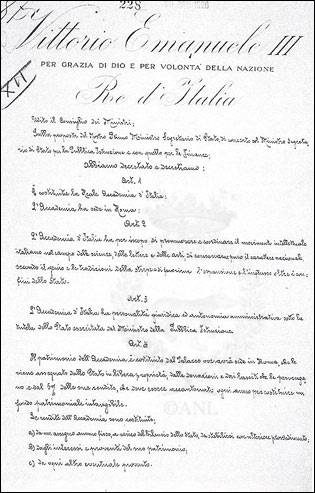 228
Vittorio Emanuele III
PER GRAZIA DI DIO E PER VOLONTÀ DELLA NAZIONE
Re d'Italia
XII
Udito il Consiglio dei Ministri;
Sulla proposta del Nostro Primo Ministro Segretario di Stato, di concerto col Ministro Segreta-
rio di Stato per la Pubblica Istruzione e con quello per le Finanze;
Abbiamo decretato e decretiamo:
Art. 1
È costituita la Reale Accademia d'Italia;
L'Accademia ha sede in Roma:
Art. 2
L'Accademia d'Italia ha per iscopo di promuovere e coordinare il movimento intellettuale
italiano nel campo delle scienze delle lettere e delle arti di conservarne puro il carattere nazionale,
secondo il genio e le tradizioni della stirpe e di favorirne l'espansione e l'influsso oltre i con-
fini dello Stato.
Art. 3
L'Accademia d'Italia ha personalità giuridica ed autonomia amministrativa sotto la
tutela dello Stato esercitata dal Ministro della Pubblica Istruzione.
Art. 4
Il patrimonio dell'Accademia è costituito dal Palazzo ove avrà sede in Roma, che le
viene assegnato dallo Stato in libera proprietà, dalle donazioni e dai lasciti che le perverran-
no e dal delle sue rendite, che deve essere accantonato ogni anno per costituire un
fondo patrimoniale intangibile.
Le rendite dell'Accademia sono costituite:
a) da un assegno annuo fisso, a carico del bilancio dello Stato, da stabilirsi con ulteriore provvedimento;
b) dagli interessi e proventi del suo patrimonio;
c) da ogni altro eventuale provento.
©ANL